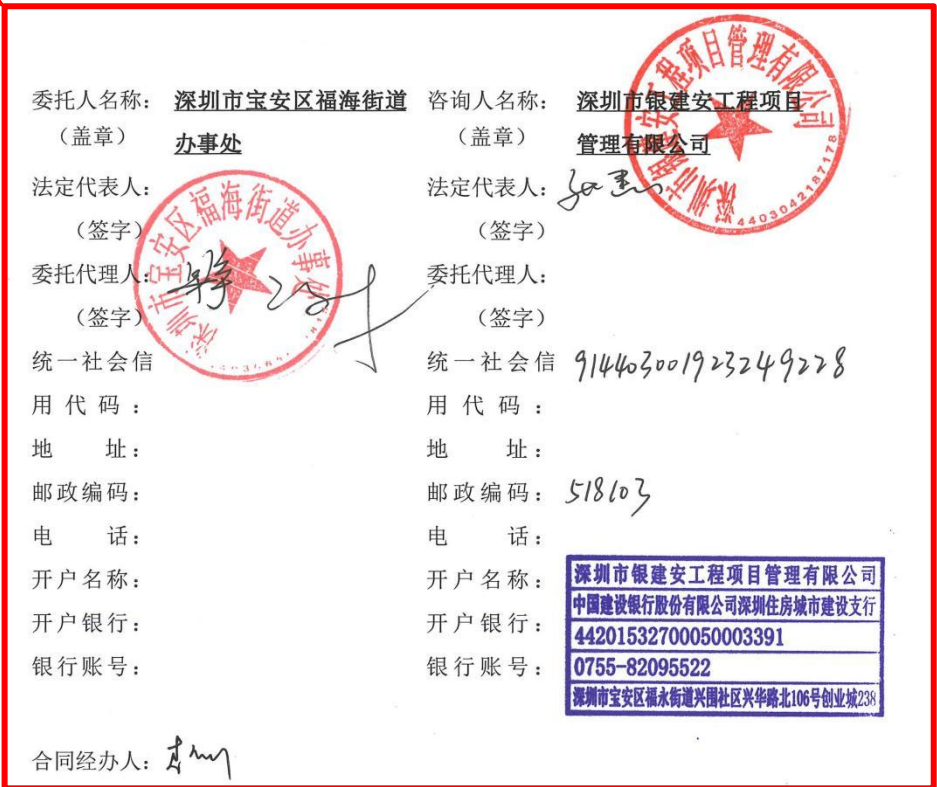 委托人名称： 深圳市宝安区福海街道
（盖章） 办事处
法定代表人：
（签字）
委托代理人：
（签字）
统一社会信
用代码：
地 址：
邮政编码：
电 话：
开户名称：
开户银行：
银行账号：
合同经办人：
深圳市宝安区福海街道办事处
咨询人名称： 深圳市银建安工程项目
（盖章） 管理有限公司
法定代表人：
（签字）
委托代理人：
（签字）
统一社会信 914403001923249228
用代码：
地 址：
邮政编码： 518103
电 话：
开户名称：
开户银行：
银行账号：
深圳市银建安工程项目管理有限公司
4403042187178
深圳市银建安工程项目管理有限公司
中国建设银行股份有限公司深圳住房城市建设支行
44201532700050003391
0755-82095522
深圳市宝安区福永街道兴围社区兴华路北106号创业城238